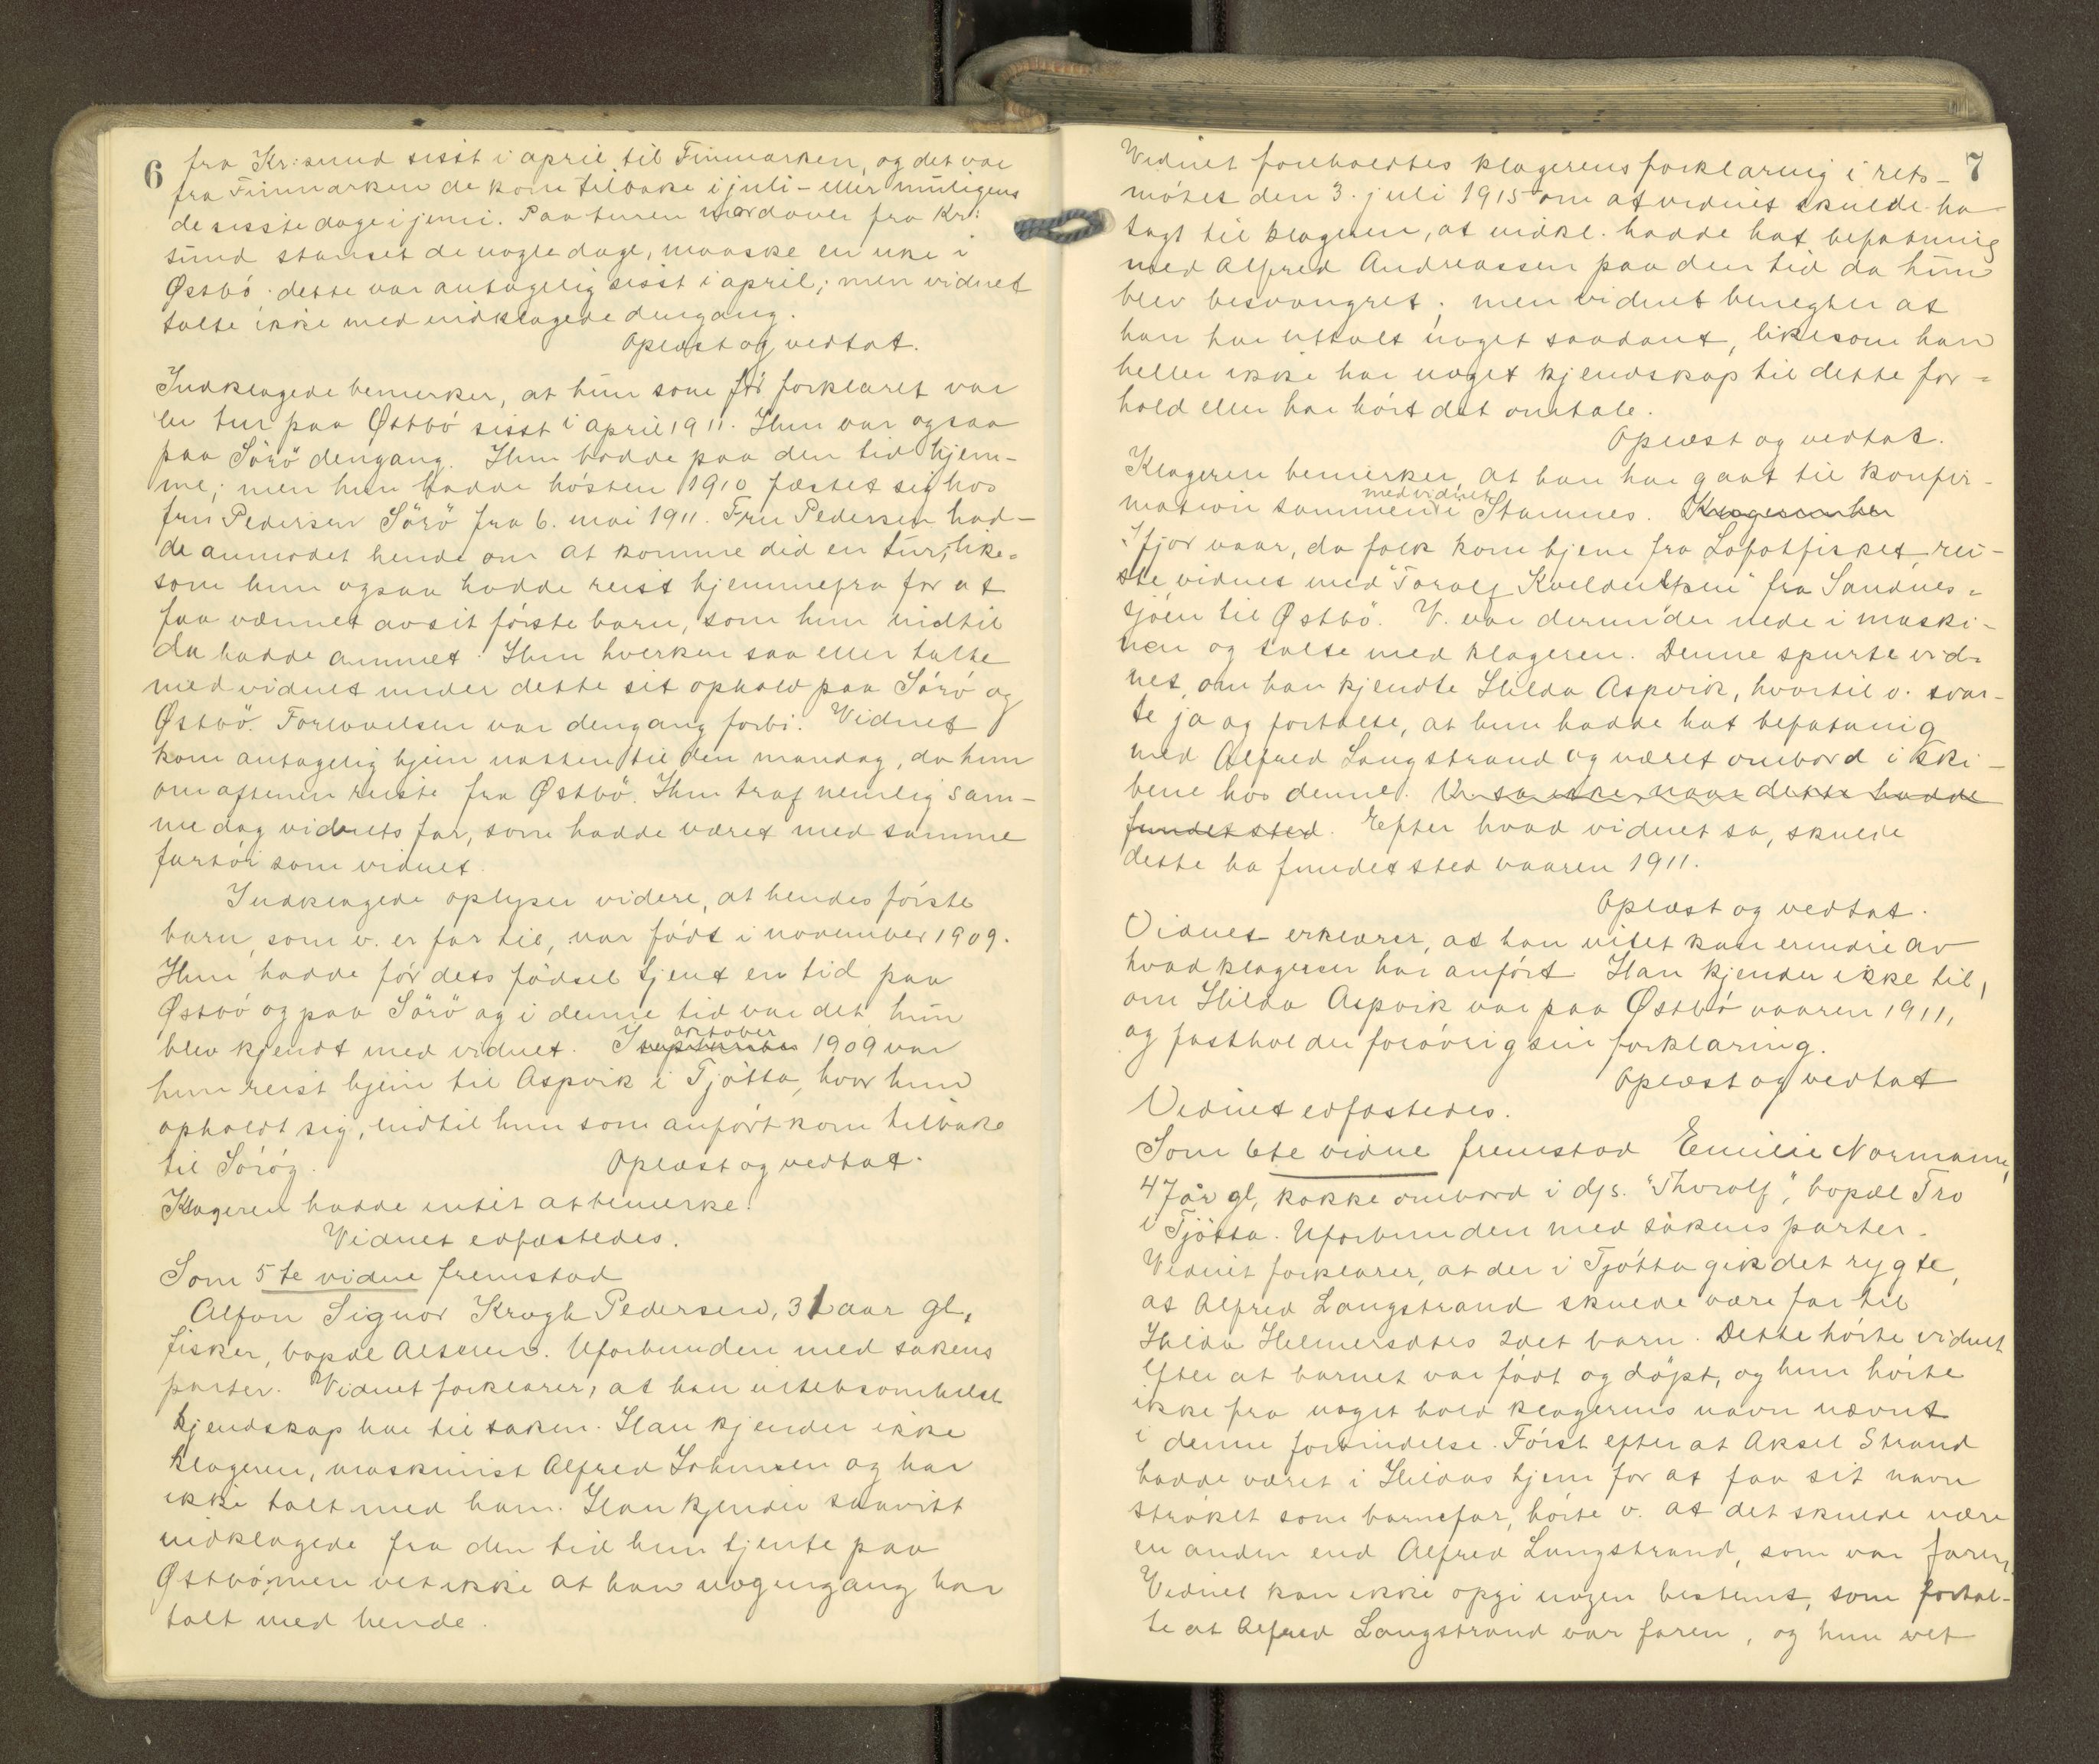 6
fra Kr:sund sisst i april til Finmarken, og det var
fra Finmarken de kom tilbake i juli - eller muligens
de sisste dage i juni. Paa turen nordover fra Kr:
sund stanset de nogle dage, maaske en uke i
Østbö; dette var antagelig sisst i april; men vidnet
talte ikke med indklagede dengang.
Oplæst og vedtat.
Indklagede bemerker, at hun som før forklaret var
en tur paa Østbö sisst i april 1911. Hun var ogsaa
paa Sörö dengang. Hun bodde paa den tid hjem-
me; men hun hadde hösten 1910 fæstet sig hos
fru Pedersen Sörö fra 6. mai 1911. Fru Pedersen had-
de anmodet hende om at komme did en tur, like-
som hun ogsaa hadde reist hjemmefra for at
faa vænnet av sit förste barn, som hun indtil
da hadde ammet. Hun hverken saa eller talte
med vidnet under dette sit ophold paa Sörö og
Østbö. Forlovelsen var dengang forbi. Vidnet
kom antagelig hjem natten til den mandag, da hun
om aftenen reiste fra Østbö. Hun traf nemlig sam-
me dag vidnets far, som hadde været med samme
fartöi som vidnet.
Indklagede oplyser videre, at hendes förste
barn, som v. er far til, var födt i november 1909.
Hun hadde för dets födsel tjent en tid paa
Østbö og paa Sörö og i denne tid var det hun
blev kjendt med vidnet. I september oktober 1909 var
hun reist hjem til Aspvik i Tjötta, hvor hun
opholdt sig, indtil hun som anfört kom tilbake
til Söröy. Oplæst og vedtat.
Klageren hadde intet at bemerke.
Vidnet edfæstedes.
Som 5te vidne fremstod
Alfon Signor Krogh Pedersen, 31 aar gl,
fisker, bopæl Alsten. Uforbunden med sakens
parter. Vidnet forklarer, at han intetsomhelst
kjendskap har til saken. Han kjender ikke
klageren, maskinist Alfred Johnsen og har
ikke talt med ham. Han kjender saavitt
indklagede fra den tid hun tjente paa
Østbö, men vet ikke at han nogengang har
talt med hende.
7
Vidnet foreholdtes klagerens forklaring i rets-
mötet den 3. juli 1915 om at vidnet skulde ha
sagt til klageren, at indkl. hadde hat befatning
med Alfred Andreassen paa den tid da hun
blev besvangret; men vidnet benegter at
han har uttalt noget saadant, likesom han
heller ikke har noget kjendskap til dette for-
hold eller har hört det omtale.
Oplæst og vedtat.
Klageren bemerker, at han har gaat til konfir-
mation sammen med vidnet i Stamnes.
Ifjor vaar, da folk kom hjem fra Lofotfisket, rei-
ste vidnet med "Toralf Kveldulfsen" fra Sandnes-
sjöen til Østbö. V. var derunder nede i maski-
nen og talte med klageren. Denne spurte vid-
net, om han kjendte Hilda Aspvik, hvortil v. svar-
te ja og fortalte, at hun hadde hat befatning
med Alfred Langstrand og været ombord i ski-
bene hos denne. V. sa ikke naar dette hadde
fundet sted. Efter hvad vidnet sa, skulde
dette ha fundet sted vaaren 1911.
Oplæst og vedtat.
Vidnet erklærer, at han intet kan erindre av
hvad klageren har anfört. Han kjender ikke til,
om Hilda Aspvik var paa Østbö vaaren 1911,
og fastholder forövrig sin forklaring.
Oplæst og vedtat
Vidnet edfæstedes.
Som 6te vidne fremstod Emilie Normann,
47 år gl, kokke ombord i d/s. "Thorolf", bopæl Tro
i Tjötta. Uforbunden med sakens parter.
Vidnet forklarer, at der i Tjötta gik det rygte,
at Alfred Langstrand skulde være far til
Hilda Helmersdtrs 2det barn. Dette hörte vidnet
efter at barnet var födt og döpt, og hun hörte
ikke fra noget hold klagerens navn nævnt
i denne forbindelse. Först efter at Aksel Strand
hadde været i Hildas hjem for at faa sit navn
ströket som barnefar, hörte v. at det skulde være
en anden end Alfred Langstrand, som var faren.
Vidnet kan ikke opgi nogen bestemt, som fortal-
te at Alfred Langstrand var faren, og hun vet